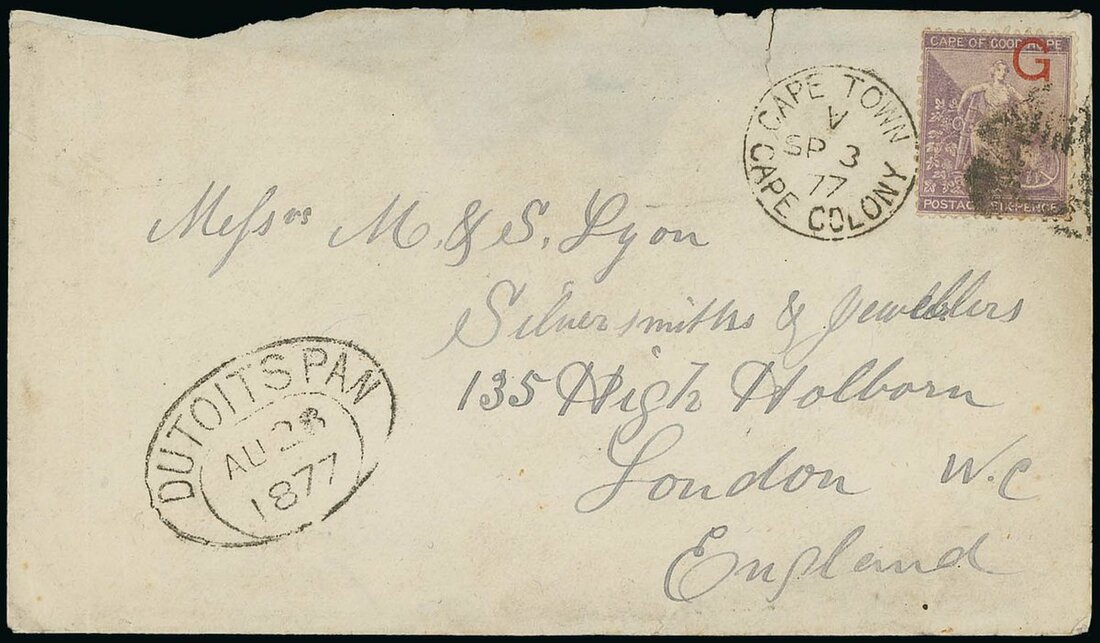 CAPE OF GOOD HOPE
G
POSTAGE SIX PENCE
CAPE TOWN
A
SP 3
77
CAPE COLONY
Messrs M. & S. Lyon
Silversmiths & Jewellers
135 High Holborn
London W.C
England
DUTOITSPAN
AU 28
1877